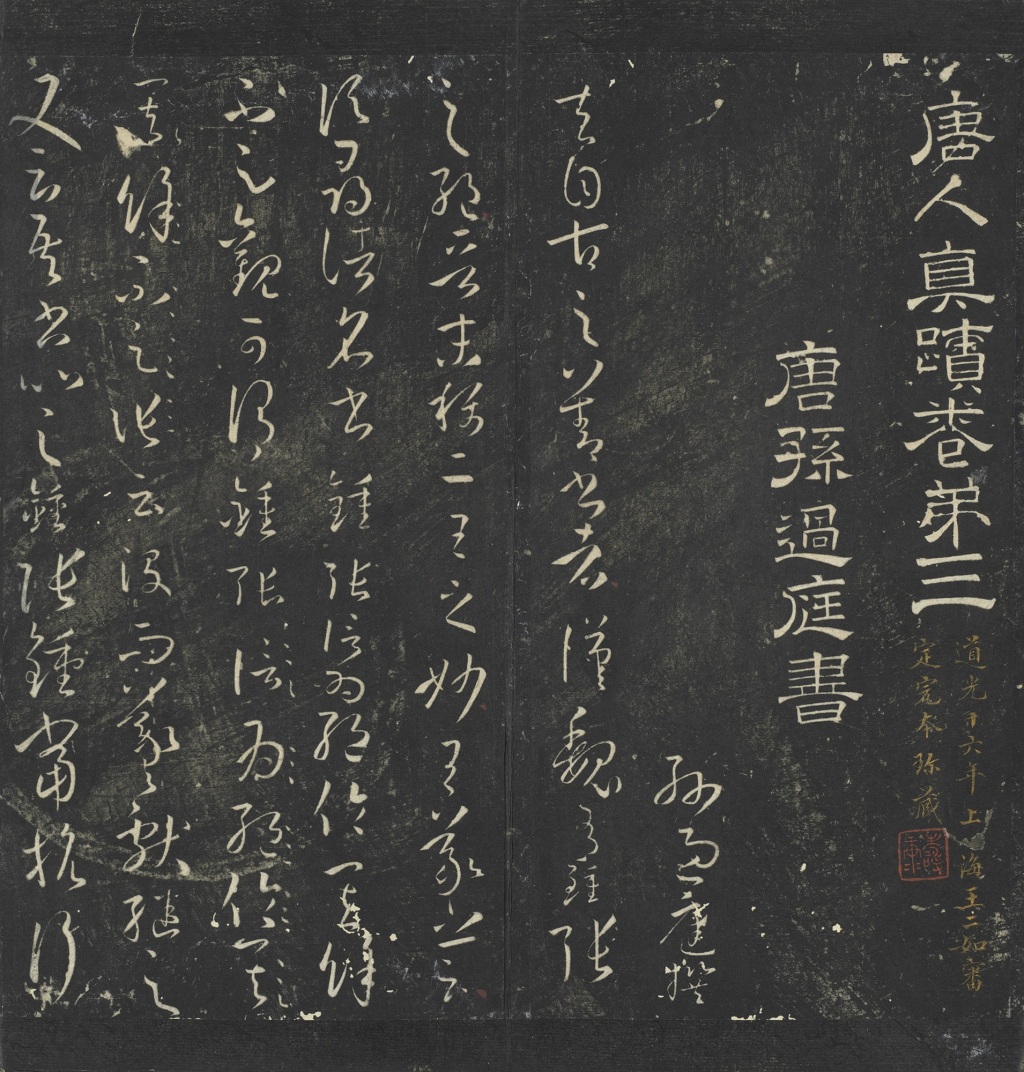 唐人真蹟卷第三
道光十六年上海王二如審
定本珍藏
唐孫過庭書
孫過庭撰
夫自古之善書者漢魏有鍾張
之絕晉末稱二王之妙王羲之云
頃尋諸名書鍾張信為絕倫其餘
不足觀可謂鍾張信為絕倫其
餘不足云沒而羲獻繼之
又云吾書比之鍾張鍾當抗行